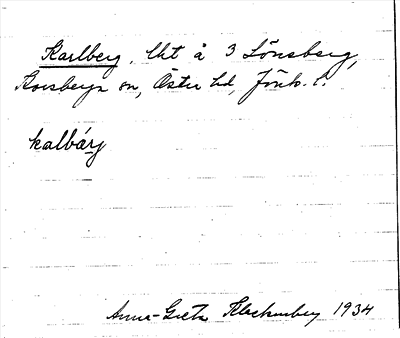 Karlberg. Uht å 3 Lönsberg,
Korsberga sn, Östra hd, Jönk. l.
kalbárj
Anna-Greta Klackenberg 1934